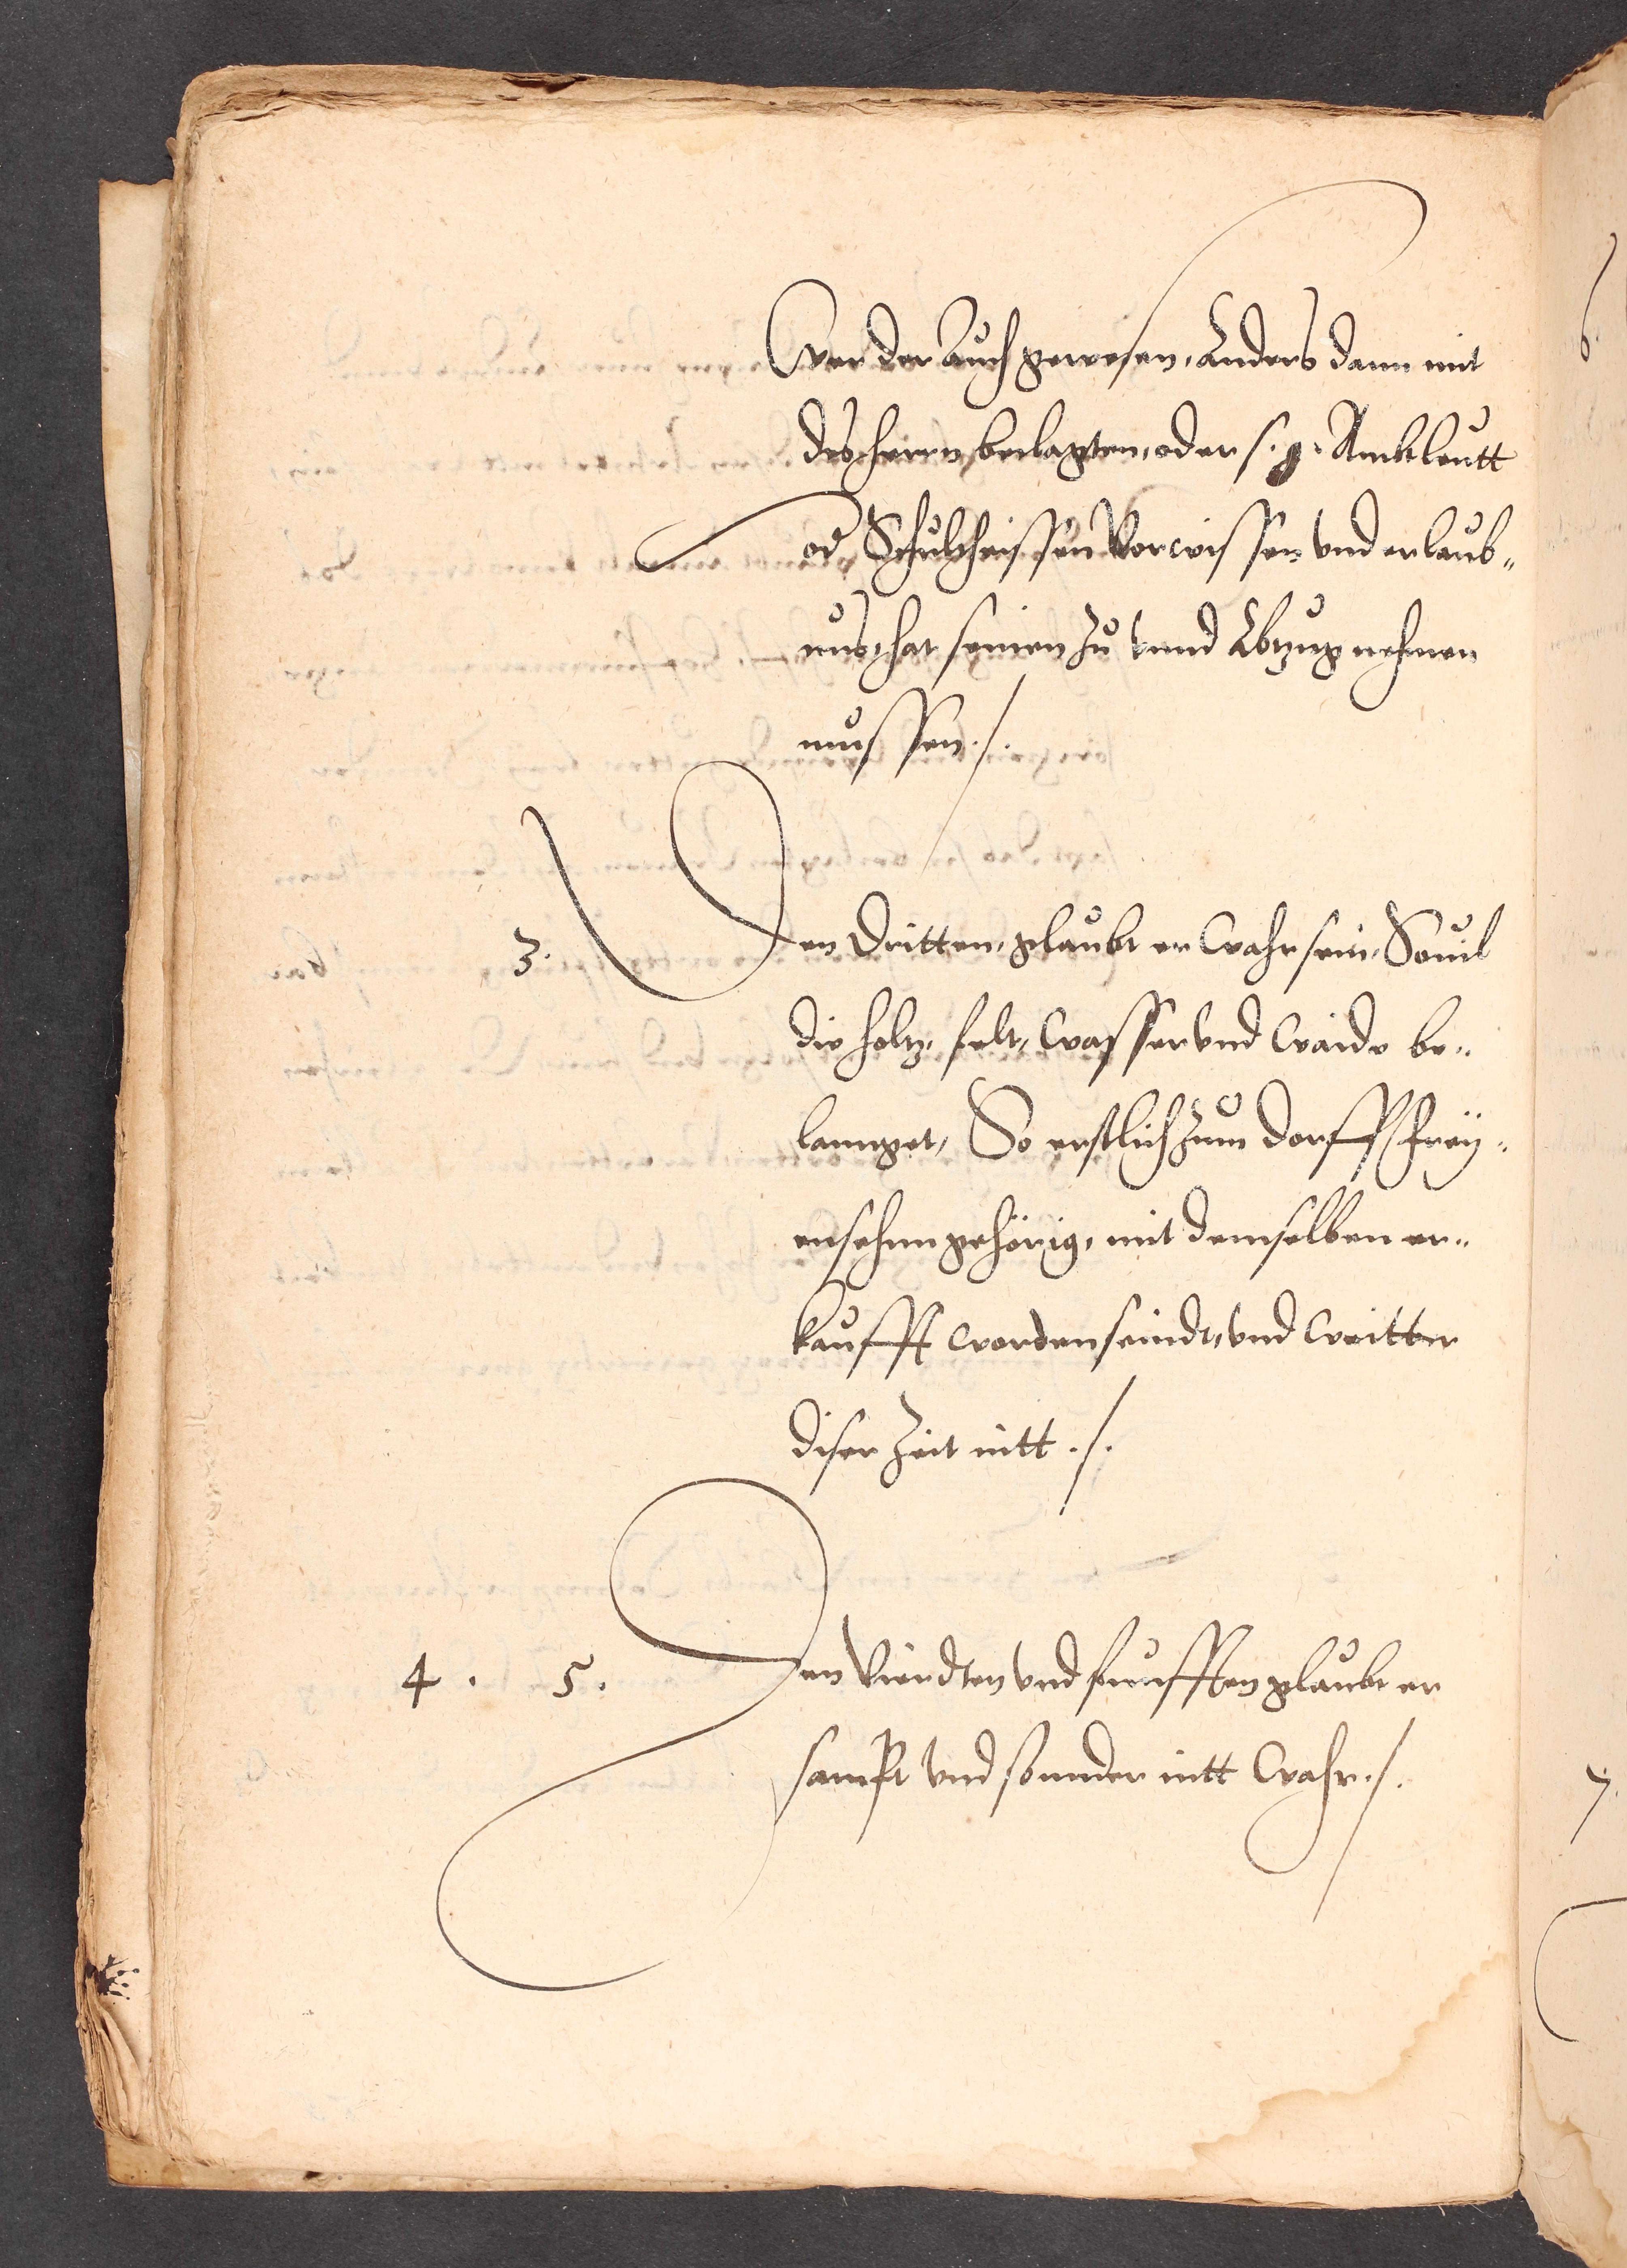 wer der auch gewesen, anders dann mit
des herrn beclagten, oder s. g. Ambtleutt
od Schultheissen Vorwissen vnd erlaub„
nus, hat seinen Zu vnnd Abzug nehmen
mussen ./.
3. Den Dritten, glaubt er wahr sein, Souil
die holtz, felt, wasser vnd waide be„
langet, So erstlich zum dorff Frey„
ensehn gehörig, mit demselben er„
kaufft worden seindt, vnd weitter
diser Zeit nitt ./.
4. 5. Den Vierdten vnd funfften glaubt er
sampt vnd sonnder nitt wahr ./.
6.
7.